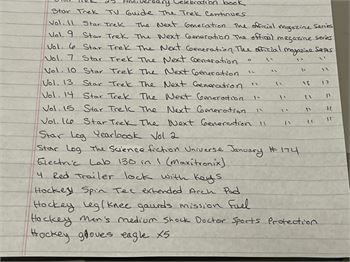 Star Trek 25 Anniversary Celebration book
Star Trek TV Guide The Trek Continues
Vol. 11 Star Trek The Next Generation The official magazine Series
Vol. 9 Star Trek The Next Generation The official magazine series
Vol. 6 Star Trek The Next Generation The official magazine Series
Vol. 7 Star Trek The Next Generation " " " "
Vol. 10 Star Trek The Next Generation " " " "
Vol. 13 Star Trek The Next Generation " " " "
Vol. 14 Star Trek The Next Generation " " " "
Vol. 15 Star Trek The Next Generation " " " "
Vol. 16 Star Trek The Next Generation " " " "
Star Log Yearbook Vol 2
Star Log The Science fiction Universe January # 174
Electric Lab 130 in 1 (maxitronix)
4 Red Trailer lock with Keys
Hockey Spin Tec extended Arch Pad
Hockey leg/knee gaurds mission Fuel
Hockey Men's medium Shock Doctor Sports Protection
Hockey gloves eagle X5